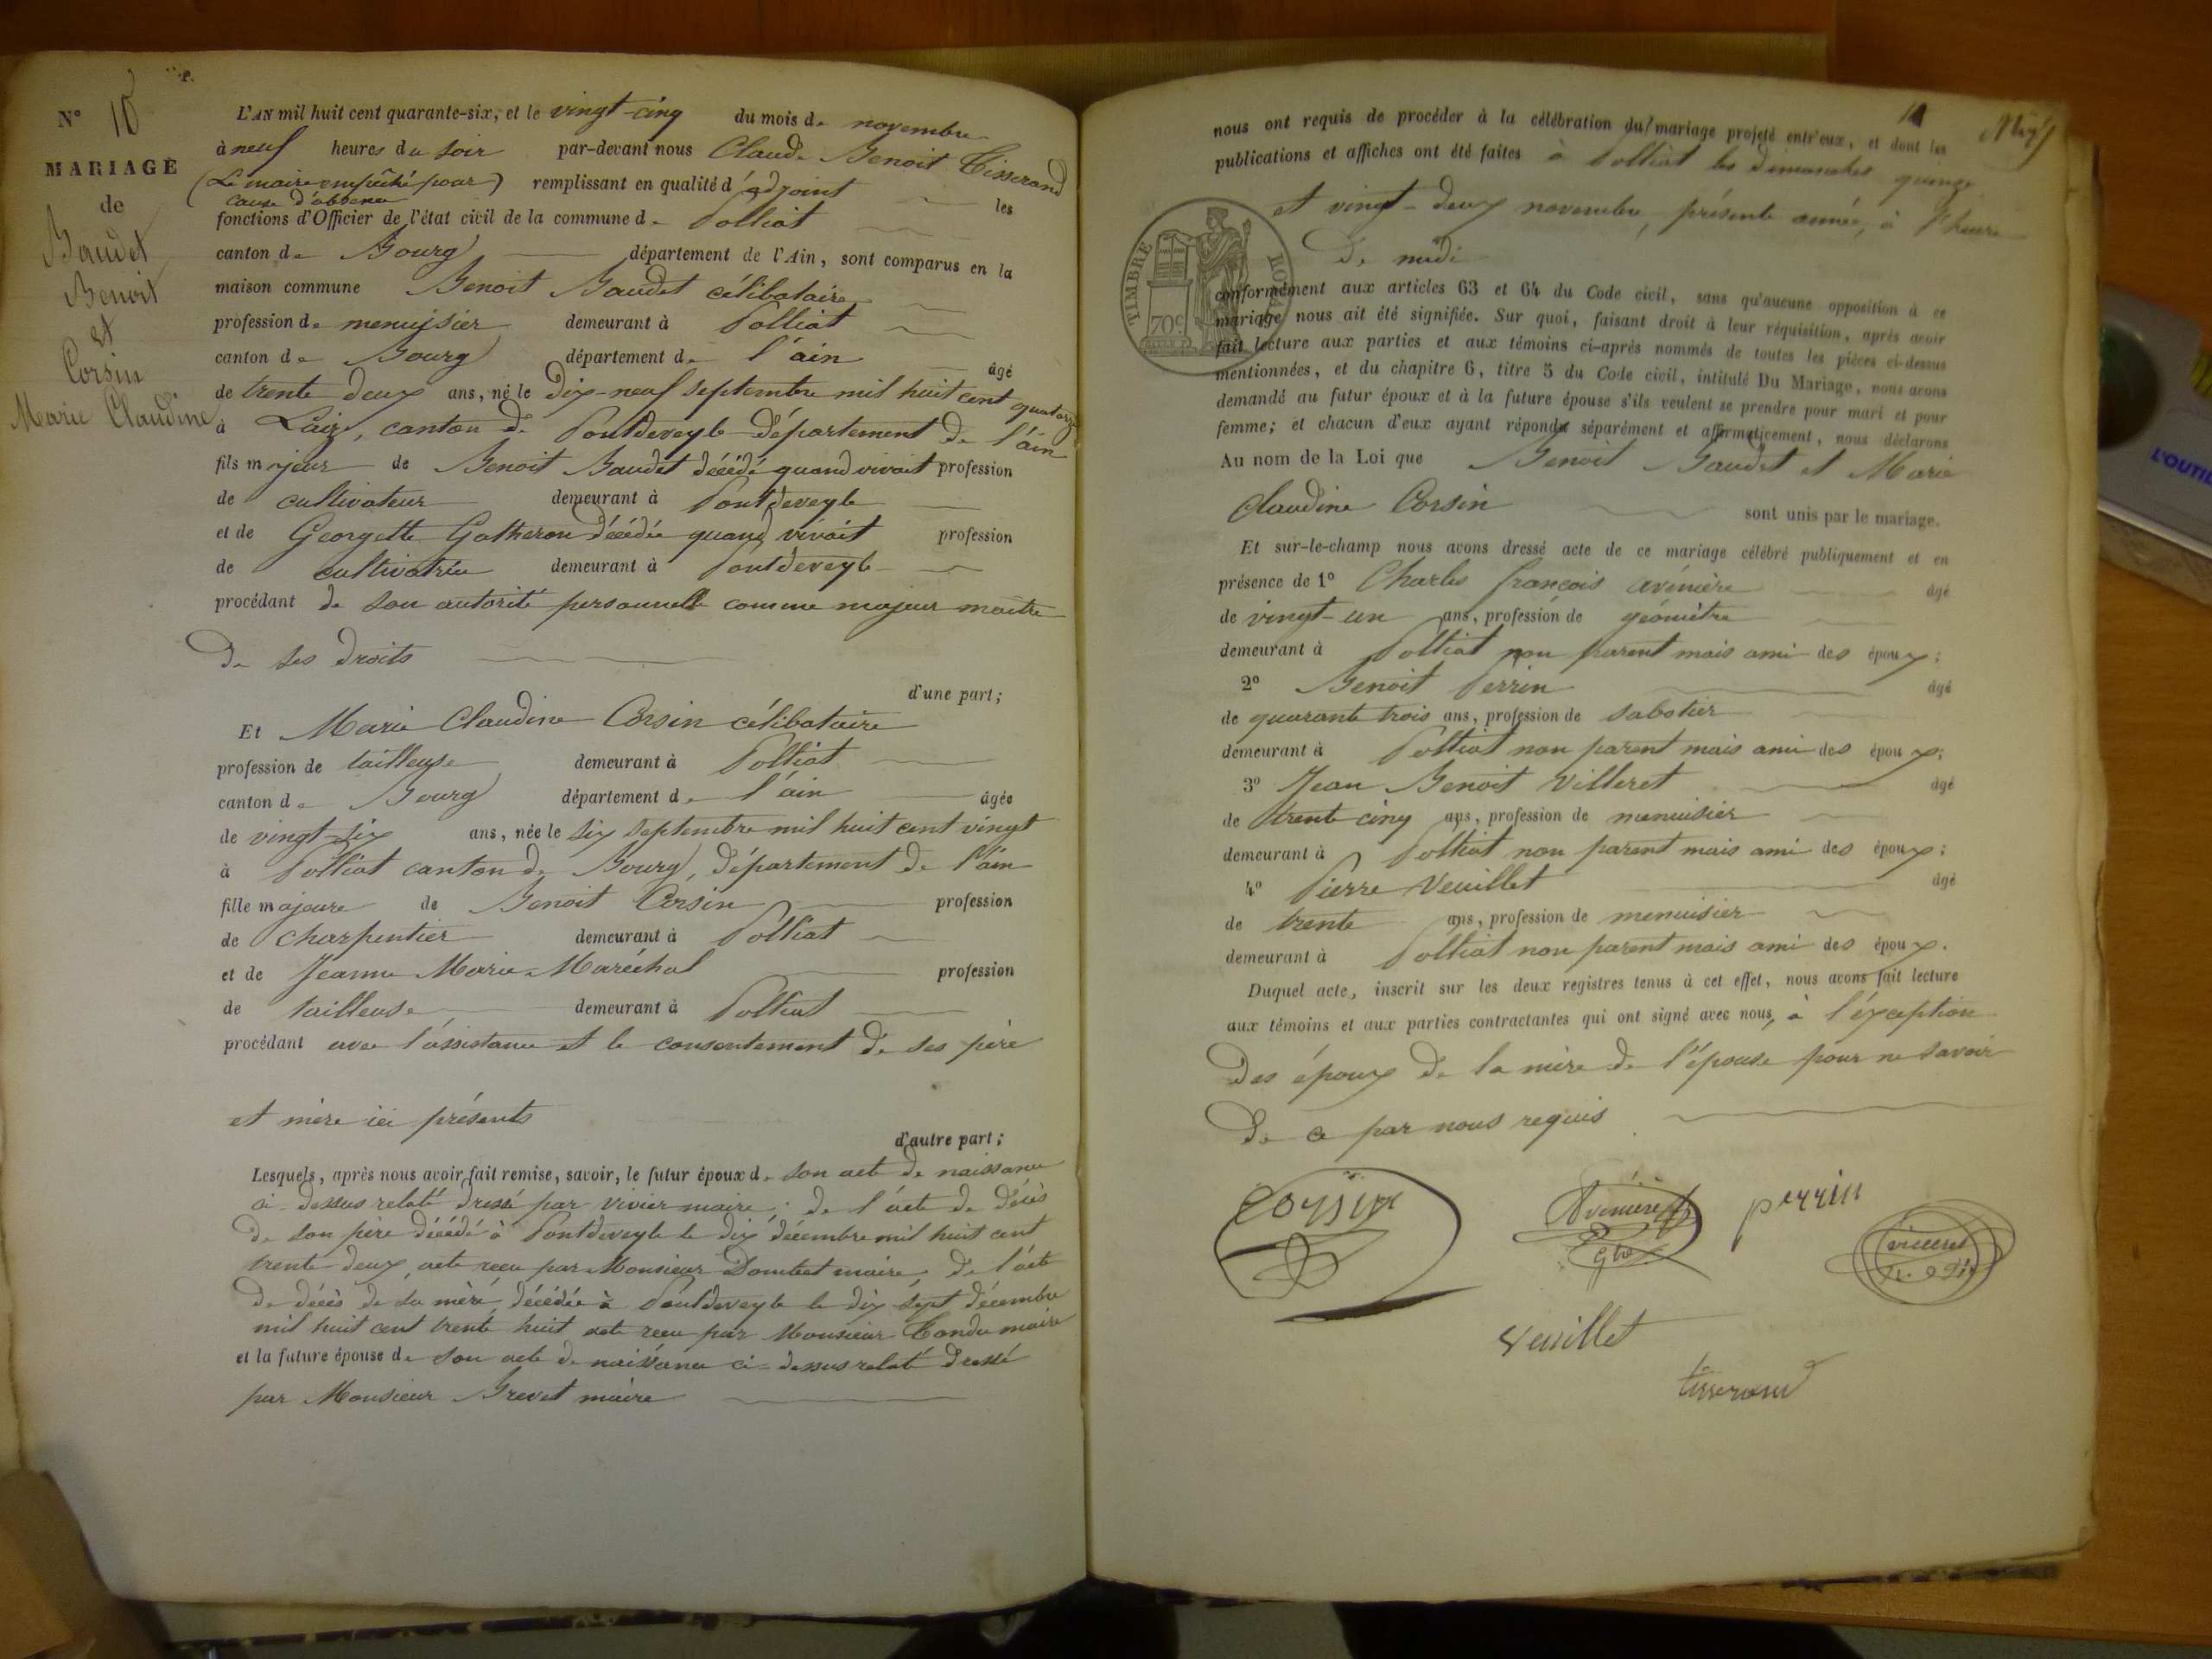 N° 10
MARIAGE
de
Baudet
Benoit
et
Corsin
Marie Claudine
L'AN mil huit cent quarante-six, et le vingt-cinq du mois de novembre
à neuf heures du soir par-devant nous Claude Benoit Tisserand
(Le maire empêché pour) remplissant en qualité d'adjoint les
cause d'absence
fonctions d'Officier de l'état civil de la commune de Polliat
canton de Bourg département de l'Ain, sont comparus en la
maison commune Benoit Baudet célibataire
profession de menuisier demeurant à Polliat
canton de Bourg département de l'ain âgé
de trente deux ans, né le dix-neuf septembre mil huit cent quatorze
à Laiz, canton de Pontdeveyle département de l'ain
fils majeur de Benoit Baudet décédé quand vivait profession
de cultivateur demeurant à Pontdeveyle
et de Georgette Gatheron décédée quand vivait profession
de cultivatrice demeurant à Pontdeveyle
procédant de son autorité personnelle comme majeur maitre
de ses droits
d'une part;
Et Marie Claudine Corsin célibataire
profession de tailleuse demeurant à Polliat
canton de Bourg département de l'ain âgée
de vingt-six ans, née le six septembre mil huit cent vingt
à Polliat canton de Bourg, département de l'ain
fille majeure de Benoit Corsin profession
de charpentier demeurant à Polliat
et de Jeanne Marie Maréchal profession
de tailleuse demeurant à Polliat
procédant avec l'assistance et le consentement de ses père
et mère ici présents
d'autre part;
Lesquels, après nous avoir fait remise, savoir, le futur époux de son acte de naissance
ci-dessus relaté dressé par vivier maire; de l'acte de décès
de son père décédé à Pontdeveyle le dix décembre mil huit cent
trente-deux, acte reçu par Monsieur maire; de l'acte
de décès de sa mère, décédée à Pontdeveyle le dix sept décembre
mil huit cent trente huit acte reçu par Monsieur maire
et la future épouse de son acte de naissance ci-dessus relaté dressé
par Monsieur Brevet maire
11
nous ont requis de procéder à la célébration du mariage projeté entr'eux, et dont les
publications et affiches ont été faites à Polliat les dimanches quinze
et vingt-deux novembre, présente année, à l'heure
de midi
TIMBRE ROYAL
70c
conformément aux articles 63 et 64 du Code civil, sans qu'aucune opposition à ce
mariage nous ait été signifiée. Sur quoi, faisant droit à leur réquisition, après avoir
fait lecture aux parties et aux témoins ci-après nommés de toutes les pièces ci-dessus
mentionnées, et du chapitre 6, titre 5 du Code civil, intitulé Du Mariage, nous avons
demandé au futur époux et à la future épouse s'ils veulent se prendre pour mari et pour
femme; et chacun d'eux ayant répondu séparément et affirmativement, nous déclarons
Au nom de la Loi que Benoit Baudet et Marie
Claudine Corsin sont unis par le mariage.
Et sur-le-champ nous avons dressé acte de ce mariage célébré publiquement et en
présence de 1° Charles françois avénière âgé
de vingt-un ans, profession de géomètre
demeurant à Polliat non parent mais ami des époux;
2° Benoit Perrin âgé
de quarante trois ans, profession de sabotier
demeurant à Polliat non parent mais ami des époux;
3° Jean Benoit Villeret âgé
de trente cinq ans, profession de menuisier
demeurant à Polliat non parent mais ami des époux;
4° Pierre Veuillet âgé
de trente ans, profession de menuisier
demeurant à Polliat non parent mais ami des époux.
Duquel acte, inscrit sur les deux registres tenus à cet effet, nous avons fait lecture
aux témoins et aux parties contractantes qui ont signé avec nous, à l'éxception
des époux de la mère de l'épouse pour ne savoir
de ce par nous requis
corsin
Avenière
perrin
villeret
veuillet
tisserand
L'OUTIL